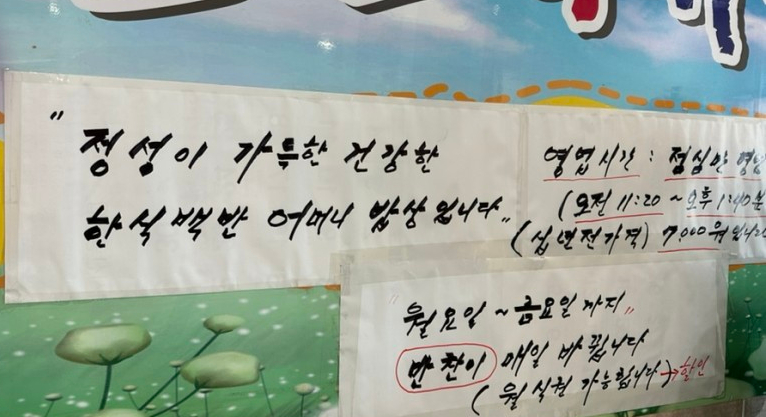 " 정성이 가득한 건강한
한식백반 어머니 밥상입니다 "
영업시간 : 점심만 영업
(오전 11:20 ~ 오후 1:40분
(십년전가격) 7,000원입니다
" 월요일 ~ 금요일까지 "
반찬이 매일 바뀝니다
(월식권 가능합니다) → 할인